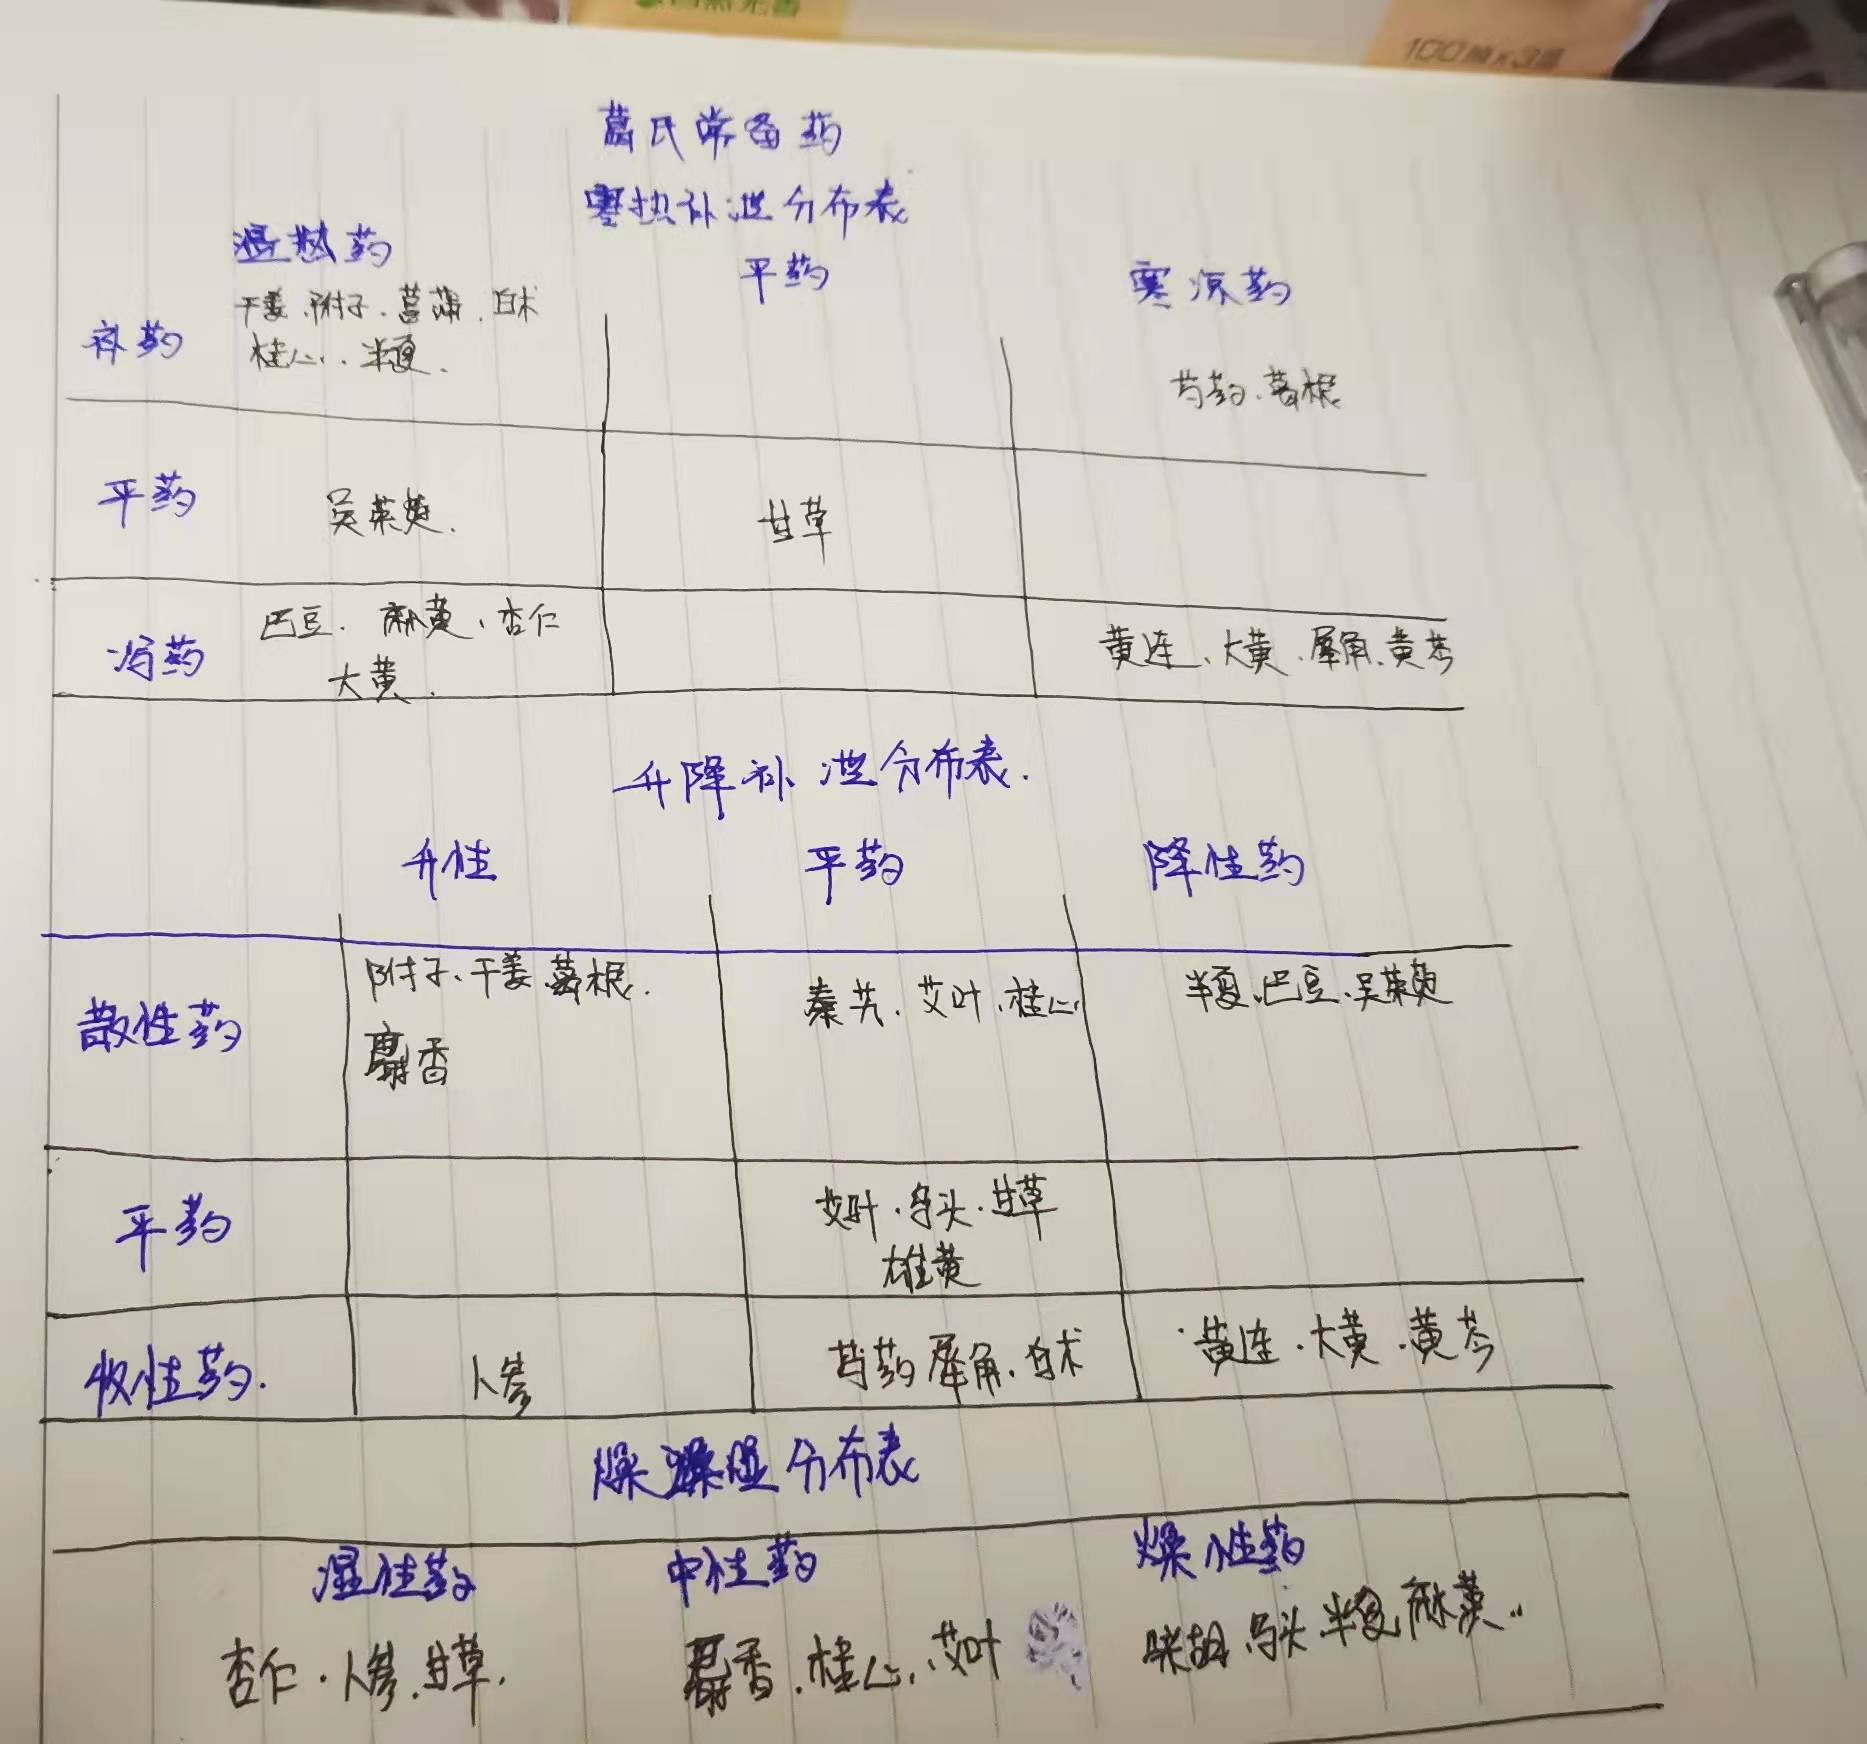 100抽×3包
葛氏常备药
寒热补泄分布表
温热药 平药 寒凉药
补药 干姜.附子.菖蒲.白术
桂心.半夏.
芍药.葛根
平药 吴茱萸. 甘草
泻药 巴豆.麻黄、杏仁
大黄.
黄连、大黄.犀角.黄芩
升降补泄分布表.
升性 平药 降性药
散性药 附子、干姜.葛根. 秦艽.艾叶.桂心 半夏.巴豆.吴茱萸
麝香
平药 艾叶.乌头.甘草
雄黄
收性药. 人参 芍药 犀角.白术 黄连.大黄.黄芩
燥湿分布表
湿性药 中性药 燥性药
杏仁.人参.甘草. 麝香.桂心.艾叶 柴胡.乌头.半夏.麻黄..